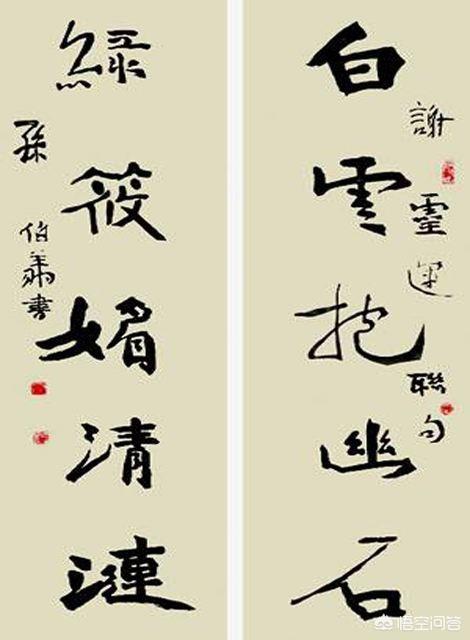 謝靈運聯句
白雲抱幽石
綠筱媚清漣
孫伯翔書
悟空问答